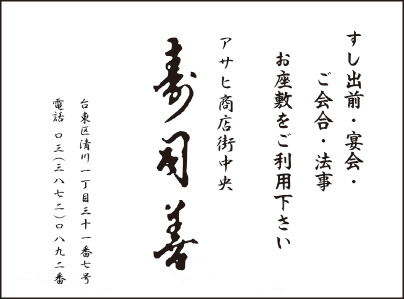 すし出前・宴会・
ご会合・法事
お座敷をご利用下さい
アサヒ商店街中央
寿司善
台東区清川一丁目三十一番七号
電話 〇三(三八七二)〇八九二番